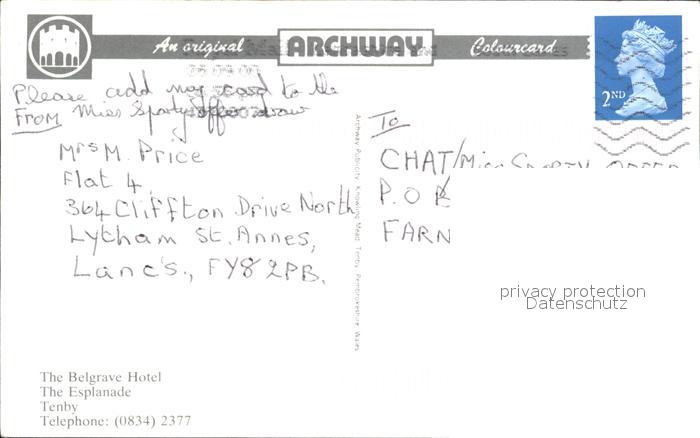 An original ARCHWAY Colourcard
2ND
Please add my card to the
FROM Miss Sporty offer draw
Mrs M. Price
Flat 4,
364 Cliffton Drive North
Lytham St. Annes,
Lanc's., FY8 2PB.
Archway Publicity, Knowling Mead, Tenby, Pembrokeshire, Wales
To
CHAT/Miss SPORTY OFFER
P.O
FARN
privacy protection
Datenschutz
The Belgrave Hotel
The Esplanade
Tenby
Telephone: (0834) 2377